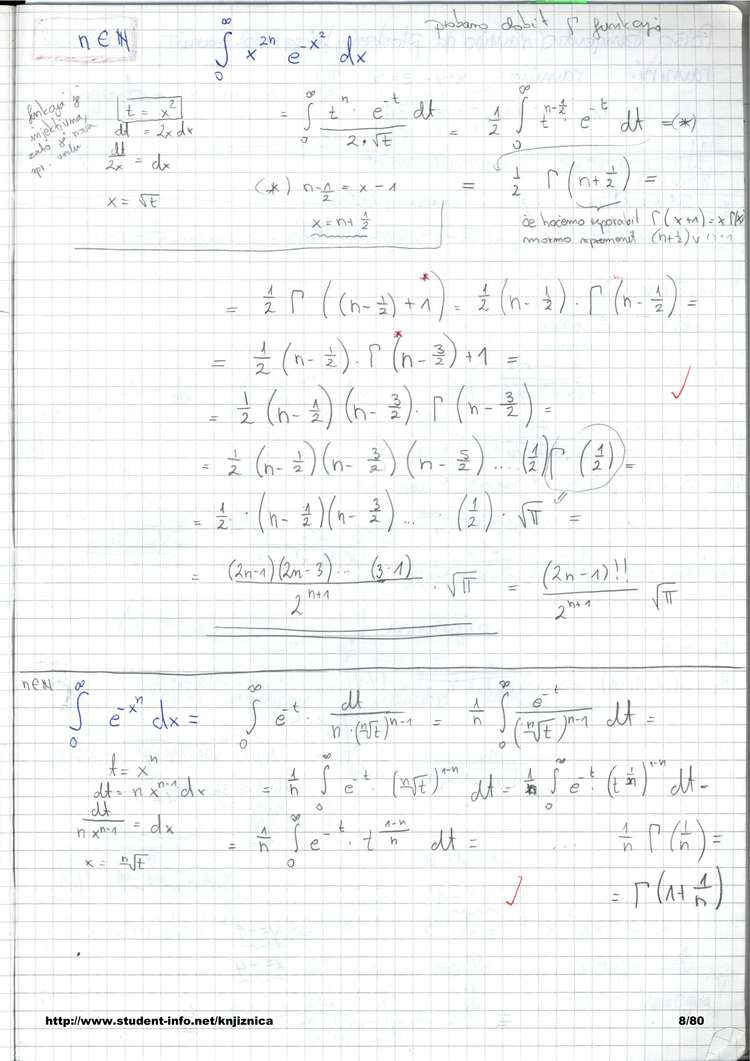 probamo dobit Γ funkcijo
n ∈ ℕ ∫₀^∞ x^{2n} e^{-x²} dx
funkcija je
injektivna,
zato je
t = x² = ∫₀^∞ (t^n · e^{-t} dt)/(2·√t) = 1/2 ∫₀^∞ t^{n-1/2} · e^{-t} dt =(*)
dt = 2x dx
dt/2x = dx
x = √t
(*) n-1/2 = x-1
x = n+1/2
= 1/2 Γ(n+1/2) =
če hočemo uporabit Γ(x+1) = xΓ(x)
moramo spremenit (n+1/2) v
= 1/2 Γ((n-1/2)+1)* = 1/2 (n-1/2) · Γ(n-1/2) =
= 1/2 (n-1/2) · Γ*(n-3/2)+1 =
= 1/2 (n-1/2)(n-3/2) · Γ(n-3/2) =
= 1/2 (n-1/2)(n-3/2)(n-5/2) .... (1/2) Γ(1/2) =
= 1/2 · (n-1/2)(n-3/2) ... · (1/2) · √π =
= ((2n-1)(2n-3)... (3·1))/2^{n+1} · √π = (2n-1)!!/2^{n+1} √π
n∈ℕ
∫₀^∞ e^{-x^n} dx = ∫₀^∞ e^{-t} · dt/(n·(ⁿ√t)^{n-1}) = 1/n ∫₀^∞ e^{-t}/(ⁿ√t)^{n-1} dt =
t = x^n
dt = n x^{n-1} dx
dt/(n x^{n-1}) = dx
x = ⁿ√t
= 1/n ∫₀^∞ e^{-t} · (ⁿ√t)^{1-n} dt = 1/n ∫₀^∞ e^{-t} · (t^{1/n})^{1-n} dt -
= 1/n ∫₀^∞ e^{-t} · t^{(1-n)/n} dt = ... 1/n Γ(1/n) =
= Γ(1+1/n)
http://www.student-info.net/knjiznica 8/80